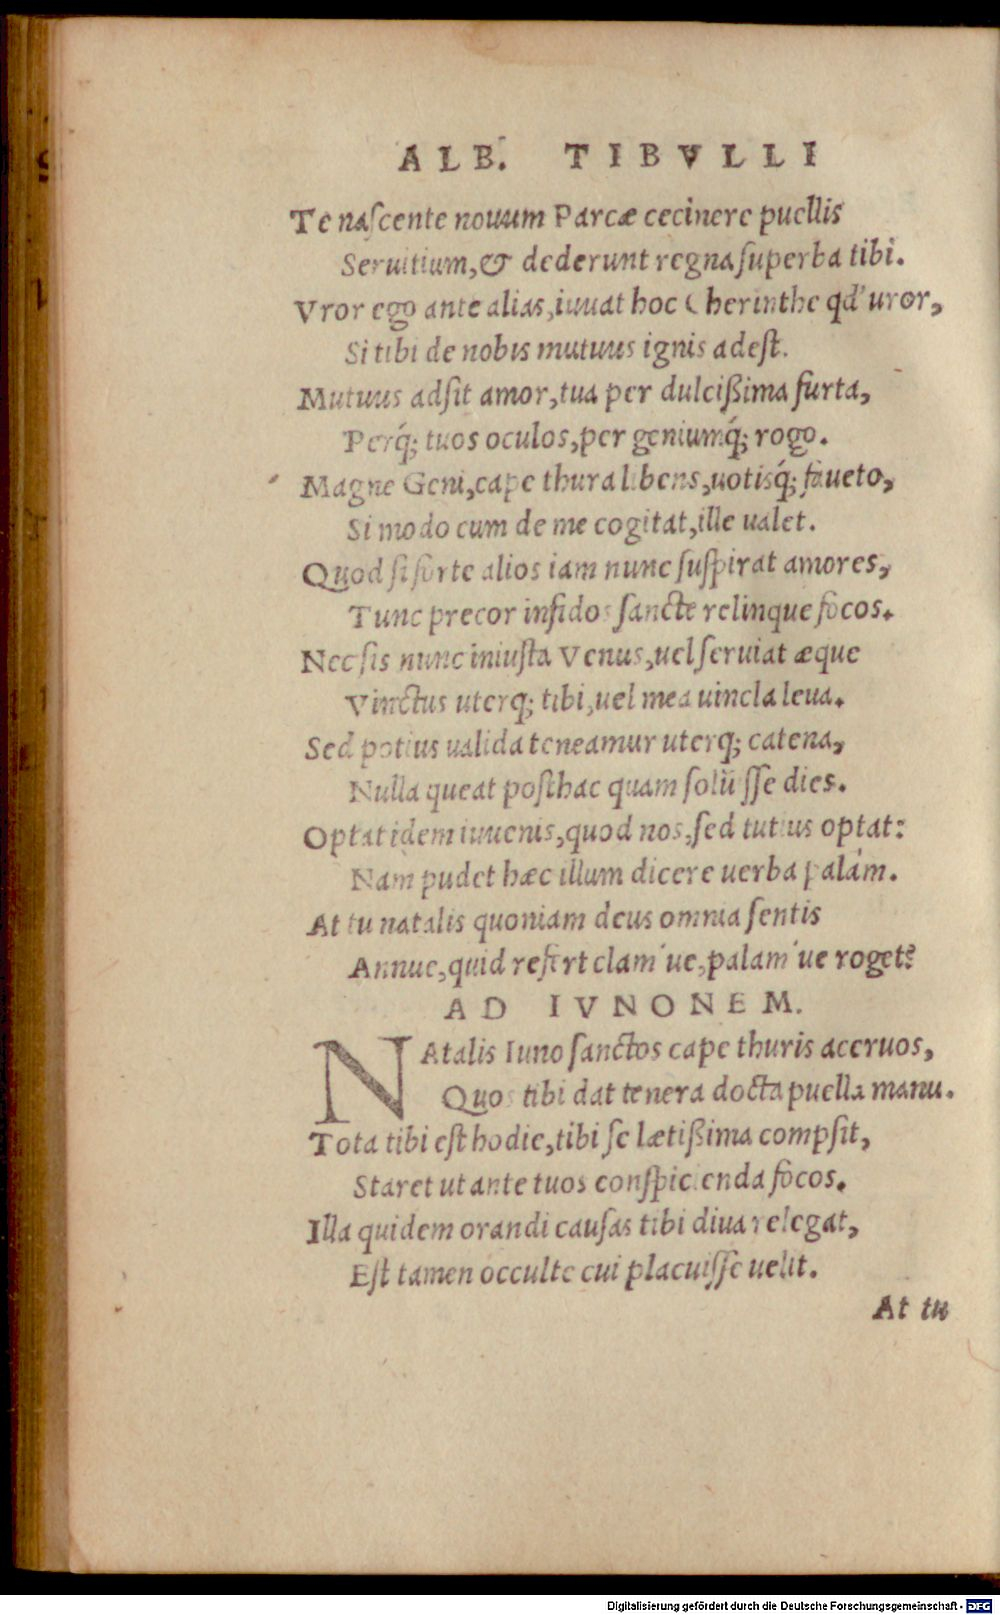 ALB. TIBVLLI
Te nascente nouum Parcæ cecinere puellis
Seruitium, & dederunt regna superba tibi.
Vror ego ante alias, iuuat hoc Cherinthe qd' uror,
Si tibi de nobis mutuus ignis adest.
Mutuus adsit amor, tua per dulcißima furta,
Perq́; tuos oculos, per geniumq́; rogo.
Magne Geni, cape thura libens, uotisq́; faueto,
Si modo cum de me cogitat, ille ualet.
Quod si forte alios iam nunc suspirat amores,
Tunc precor infidos sancte relinque focos.
Nec sis nunc iniusta Venus, uel seruiat æque
Vinctus uterq; tibi, uel mea uincla leua.
Sed potius ualida teneamur uterq; catena,
Nulla queat posthac quam soluisse dies.
Optat idem iuuenis, quod nos, sed tutius optat:
Nam pudet hæc illum dicere uerba palàm.
At tu natalis quoniam deus omnia sentis
Annue, quid refert clam'ue, palam'ue roget?
AD IVNONEM.
NAtalis Iuno sanctos cape thuris aceruos,
Quos tibi dat tenera docta puella manu.
Tota tibi est hodie, tibi se lætißima compsit,
Staret ut ante tuos conspicienda focos.
Illa quidem orandi causas tibi diua relegat,
Est tamen occulte cui placuisse uelit.
At tu
Digitalisierung gefördert durch die Deutsche Forschungsgemeinschaft - DFG